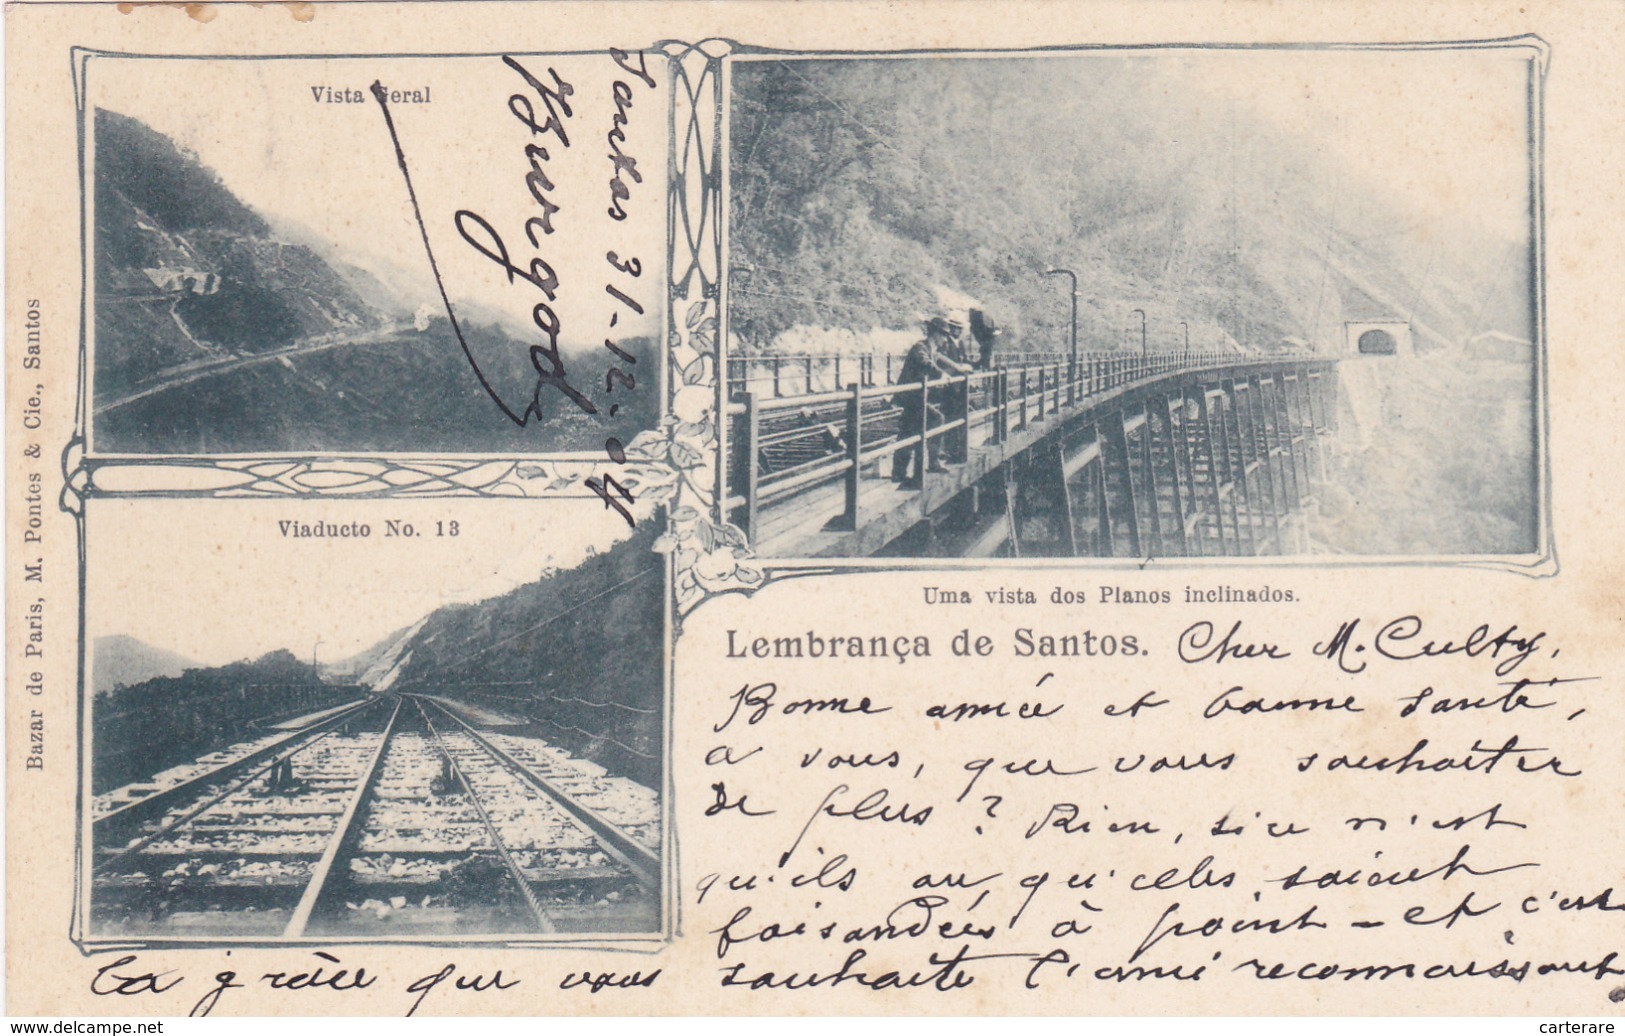 Vista Geral
Santos 31-12-04
Viaducto No. 13
Bazar de Paris, M. Pontes & Cie., Santos
Uma vista dos Planos inclinados.
Lembrança de Santos.
Cher M.
Bonne année et bonne santé,
a vous, que vous souhaiter
de plus? Rien, si ce n'est
qu'ils ou qu'elles soient
faisandées à point - et c'est
la grâce que vous souhaite l'ami reconnaissant
www.delcampe.net
carterare